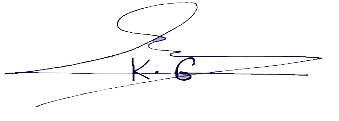 K. G